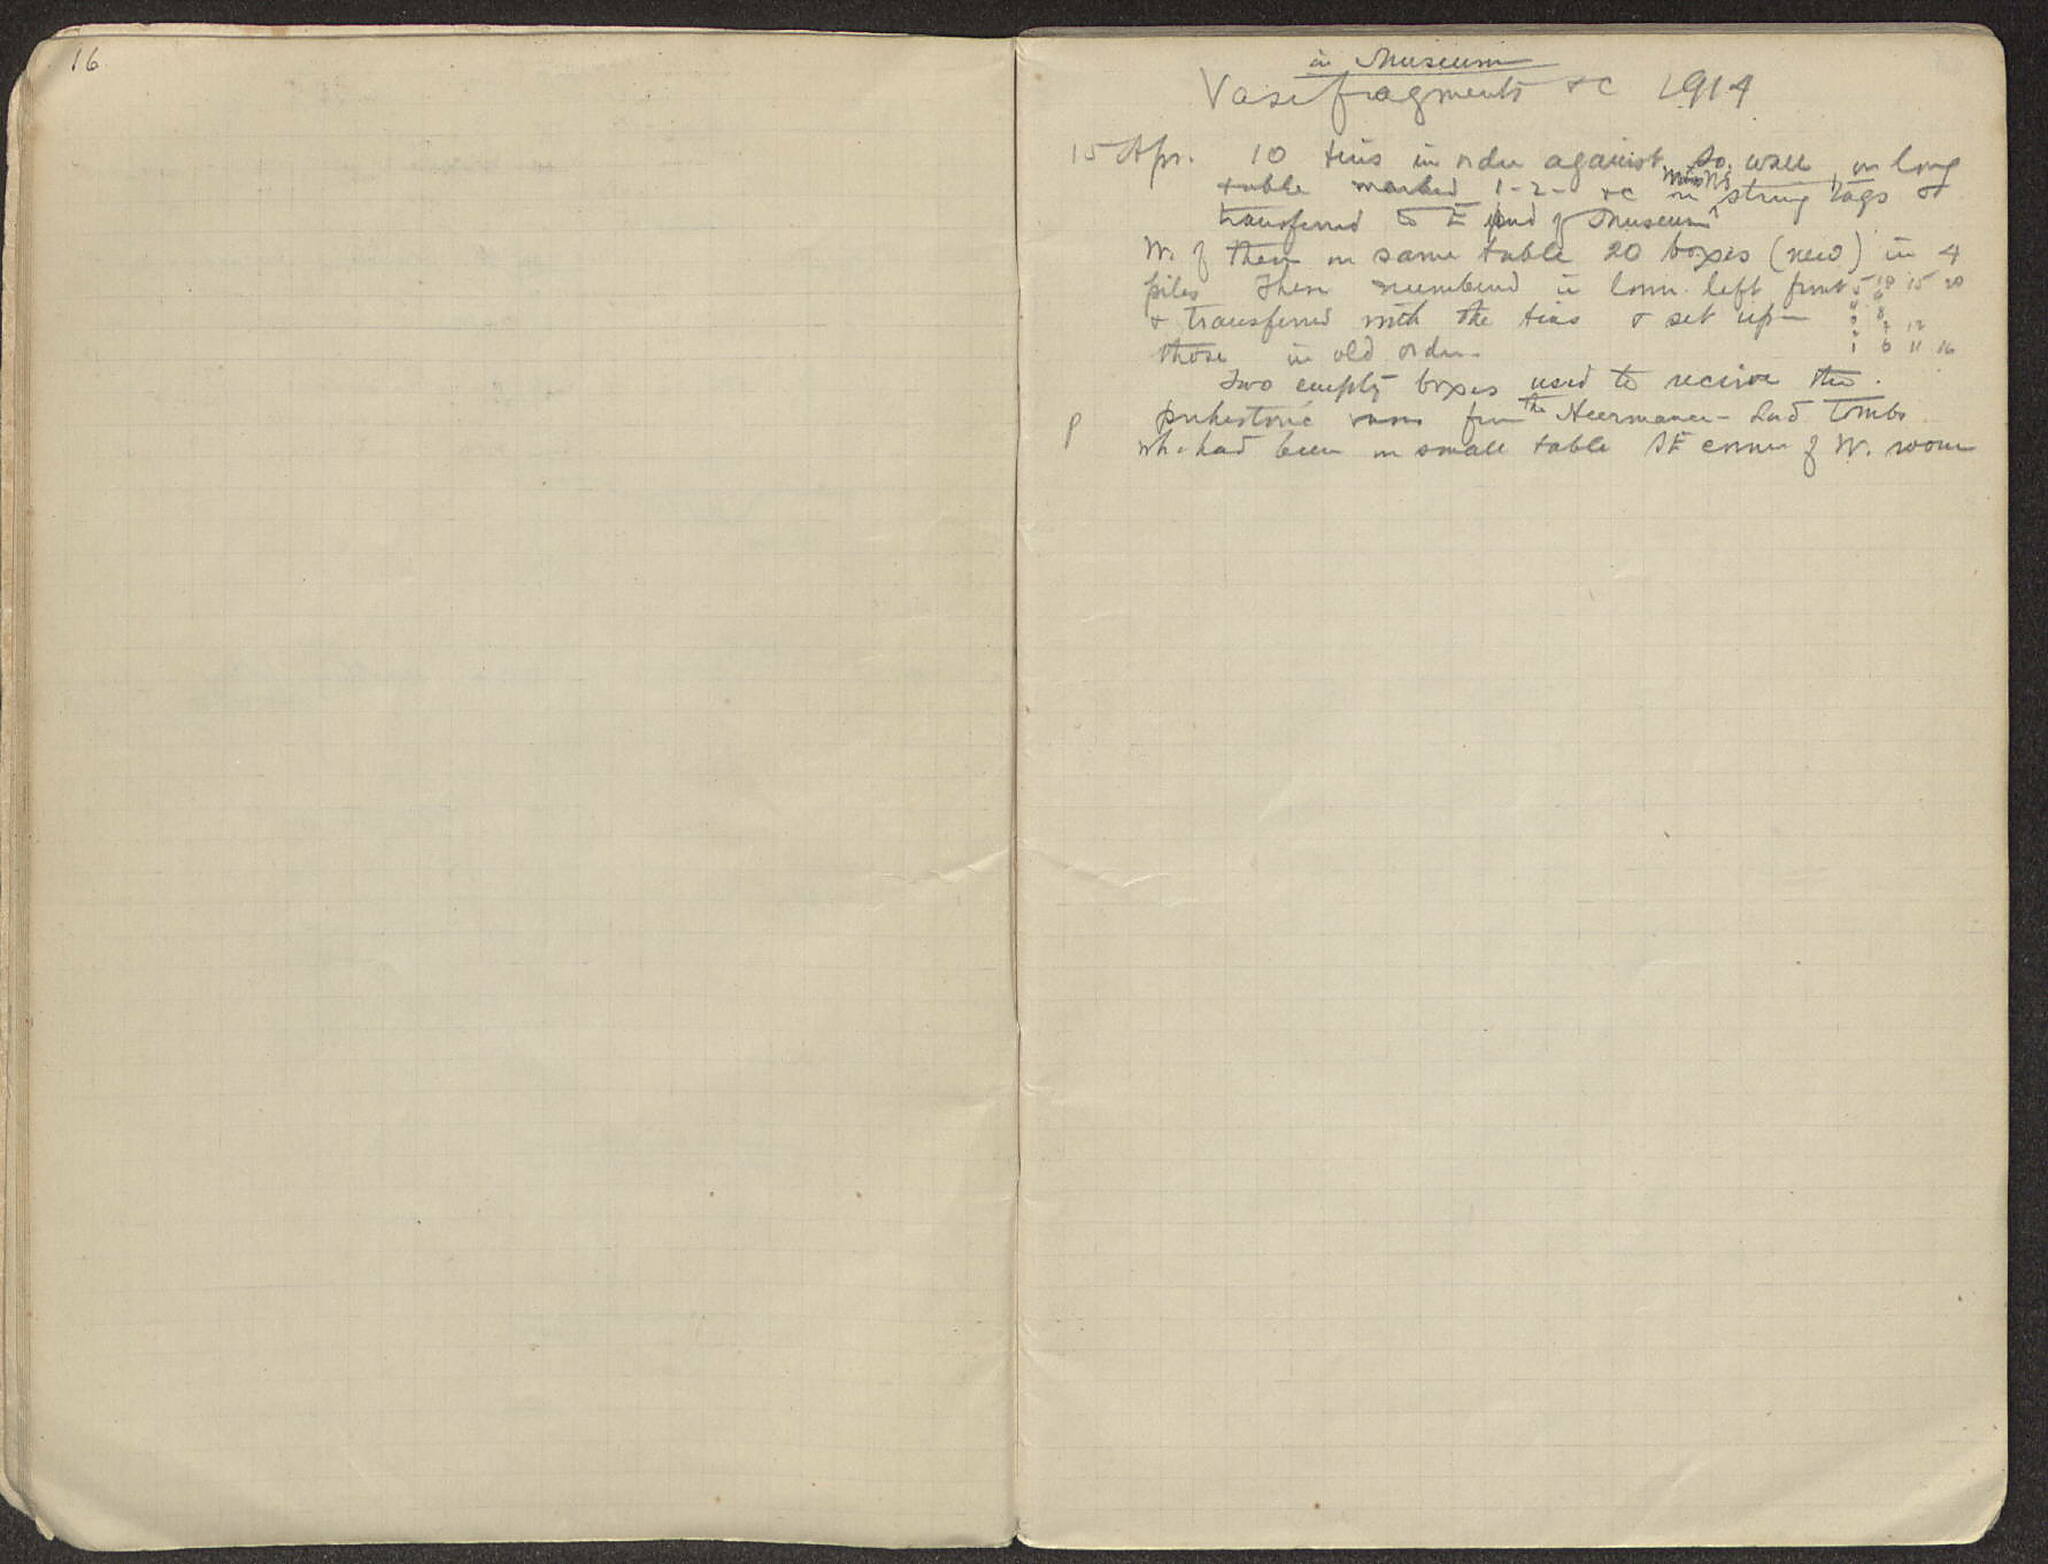 16
in Museum
Vase fragments &c 1914
15 Apr. 10 tins in order against So. wall, on long
table marked 1-2- &c on string tags &
transferred to E end of Museum
W. of them on same table 20 boxes (new) in 4
piles These numbered in lower left front 5 10 15 20
& transferred with the tins & set up
those in old order.
Two empty boxes used to receive the
prehistoric vases from the Heermance-Lord tombs
P
wh. had been on small table SE corner of W. room
4
3 8
2 7 12
1 6 11 16